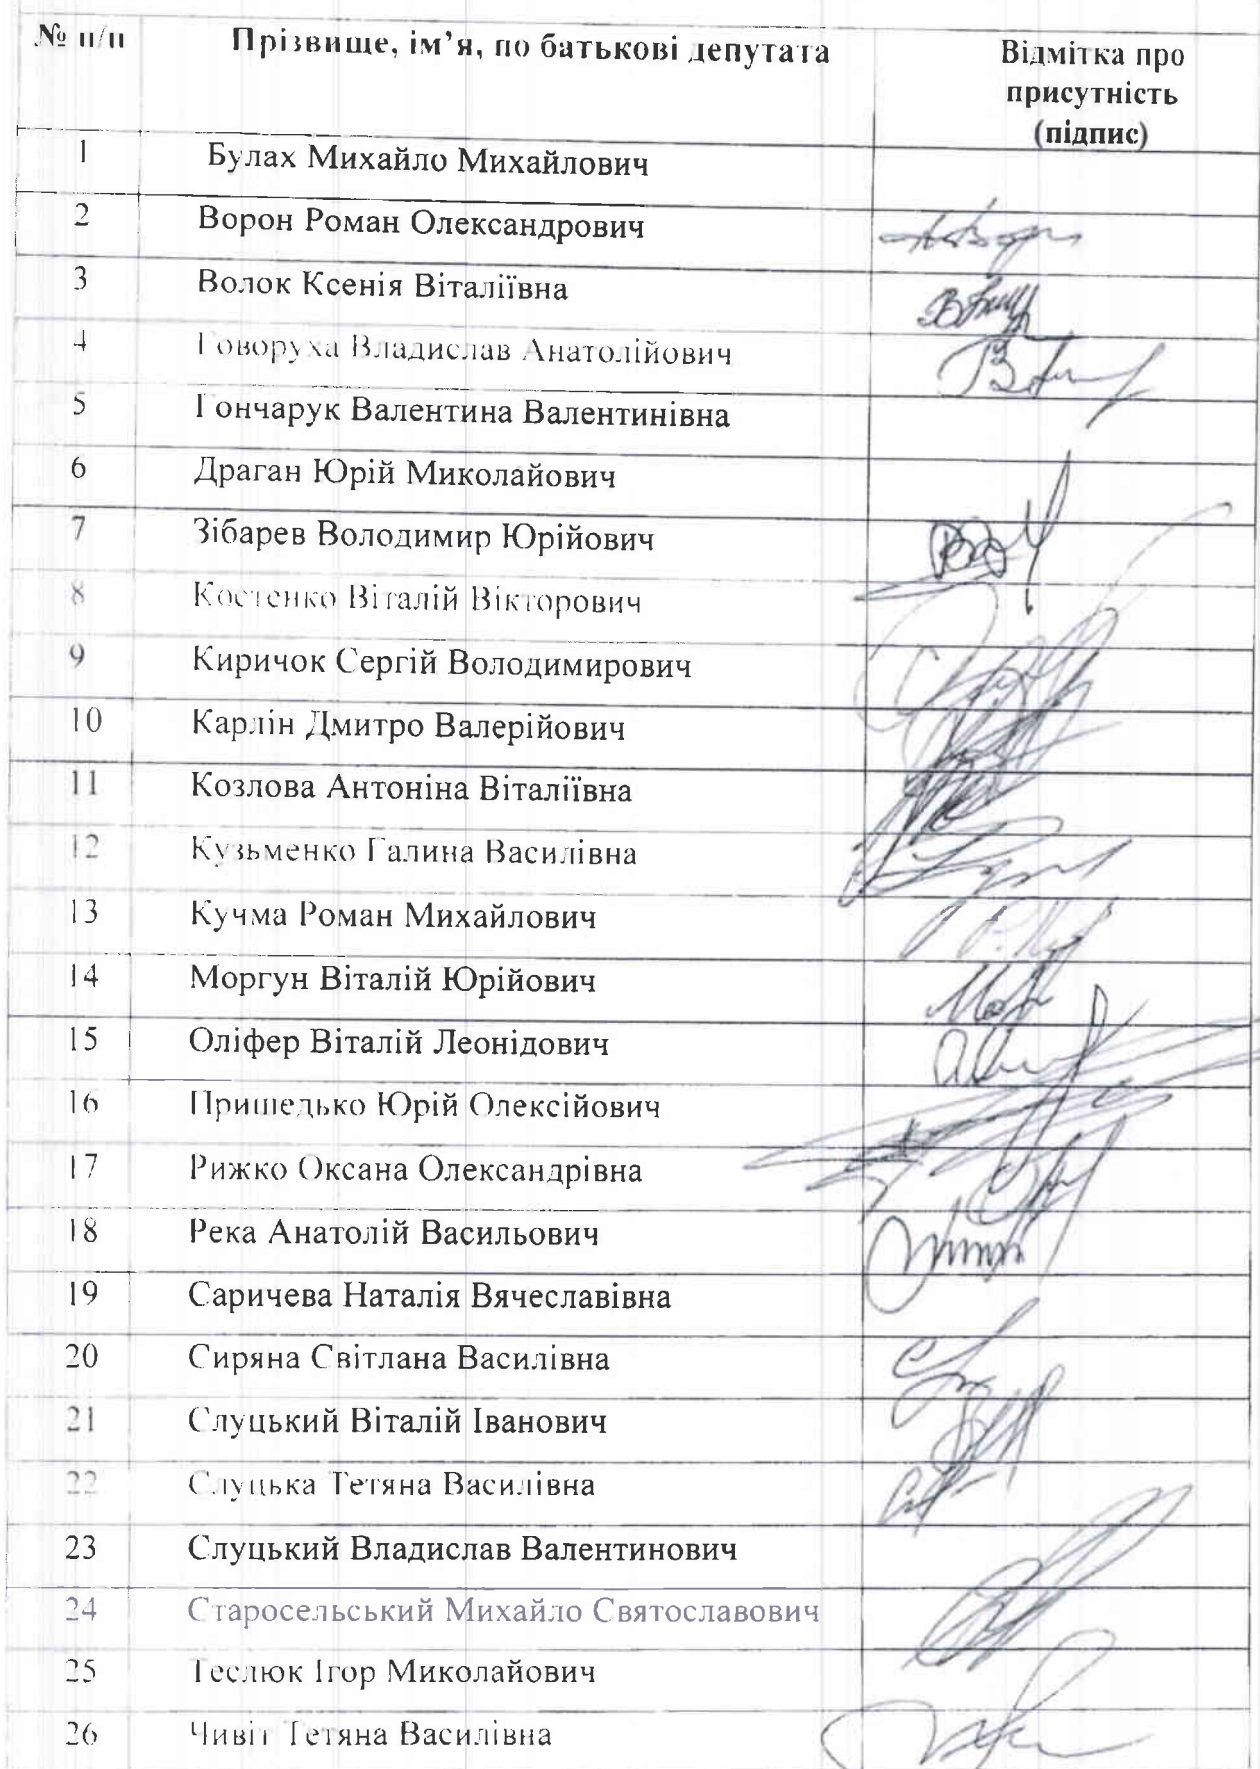 № п/п Прізвище, ім’я, по батькові депутата Відмітка про
присутність
(підпис)
1 Булах Михайло Михайлович
2 Ворон Роман Олександрович
3 Волок Ксенія Віталіївна
4 Говоруха Владислав Анатолійович
5 Гончарук Валентина Валентинівна
6 Драган Юрій Миколайович
7 Зібарев Володимир Юрійович
8 Костенко Віталій Вікторович
9 Киричок Сергій Володимирович
10 Карлін Дмитро Валерійович
11 Козлова Антоніна Віталіївна
12 Кузьменко Галина Василівна
13 Кучма Роман Михайлович
14 Моргун Віталій Юрійович
15 Оліфер Віталій Леонідович
16 Пришедько Юрій Олексійович
17 Рижко Оксана Олександрівна
18 Река Анатолій Васильович
19 Саричева Наталія Вячеславівна
20 Сиряна Світлана Василівна
21 Слуцький Віталій Іванович
22 Слуцька Тетяна Василівна
23 Слуцький Владислав Валентинович
24 Старосельський Михайло Святославович
25 Теслюк Ігор Миколайович
26 Чивіт Тетяна Василівна